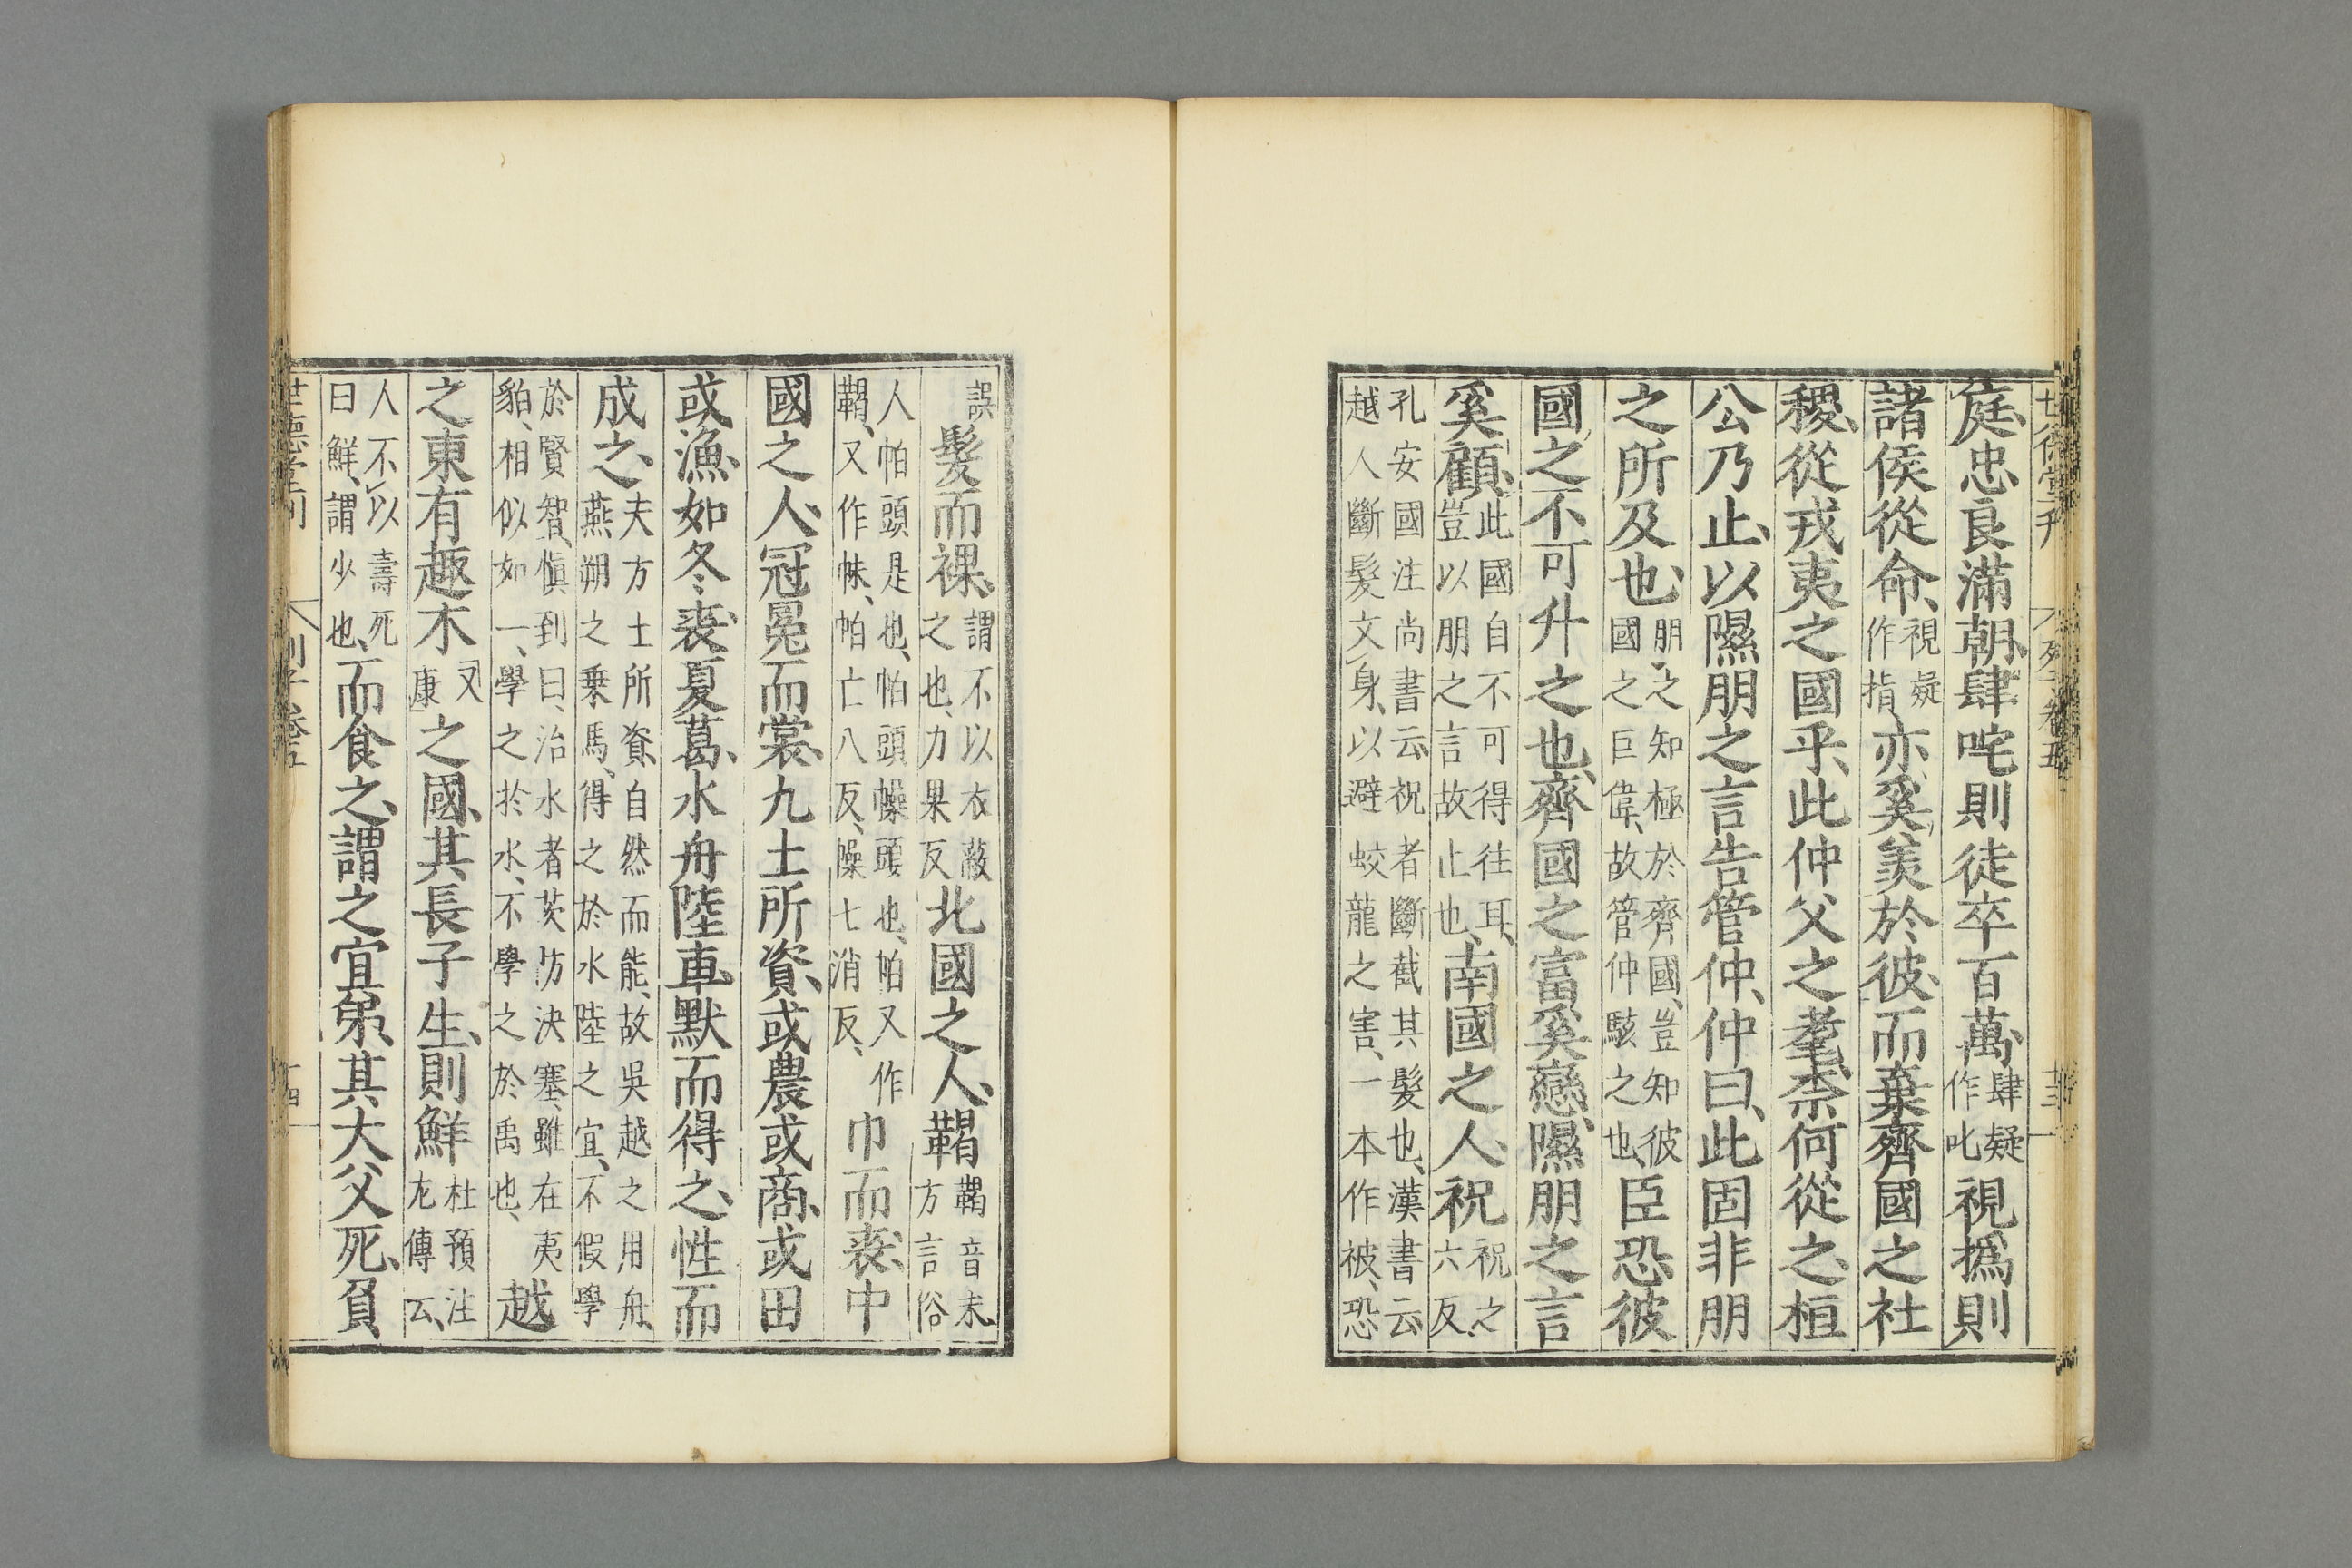 世德堂刊 列子卷五 十三
庭忠良滿朝肆咤則徒卒百萬肆疑作叱視撝則
諸侯從命視疑作指亦奚羨於彼而棄齊國之社
稷從戎夷之國乎此仲父之耄柰何從之桓
公乃止以隰朋之言告管仲仲曰此固非朋
之所及也朋之知極於齊國豈知彼國之巨偉故管仲駭之也臣恐彼
國之不可升之也齊國之富奚戀隰朋之言
奚顧此國自不可得往耳豈以朋之言故止也南國之人祝祝之六反
孔安國注尚書云祝者斷截其髮也漢書云越人斷髮文身以避蛟龍之害一本作被恐
誤髮而裸謂不以衣蔽之也力果反北國之人鞨鞨音末方言俗
人帕頭是也帕頭幧頭也帕又作鞨又作帓帕亡八反幧七消反巾而裘中
國之人冠冕而裳九土所資或農或商或田
或漁如冬裘夏葛水舟陸車默而得之性而
成之夫方土所資自然而能故吳越之用舟燕朔之乗馬得之於水陸之宜不假學
於賢智慎到曰治水者茨防決塞雖在夷貊相似如一學之於水不學之於禹也越
之東有趣木又康之國其長子生則鮮杜預注左傳云
人不以壽死曰鮮謂少也而食之謂之宜弟其大父死負
世德堂刊 列子卷五 十四